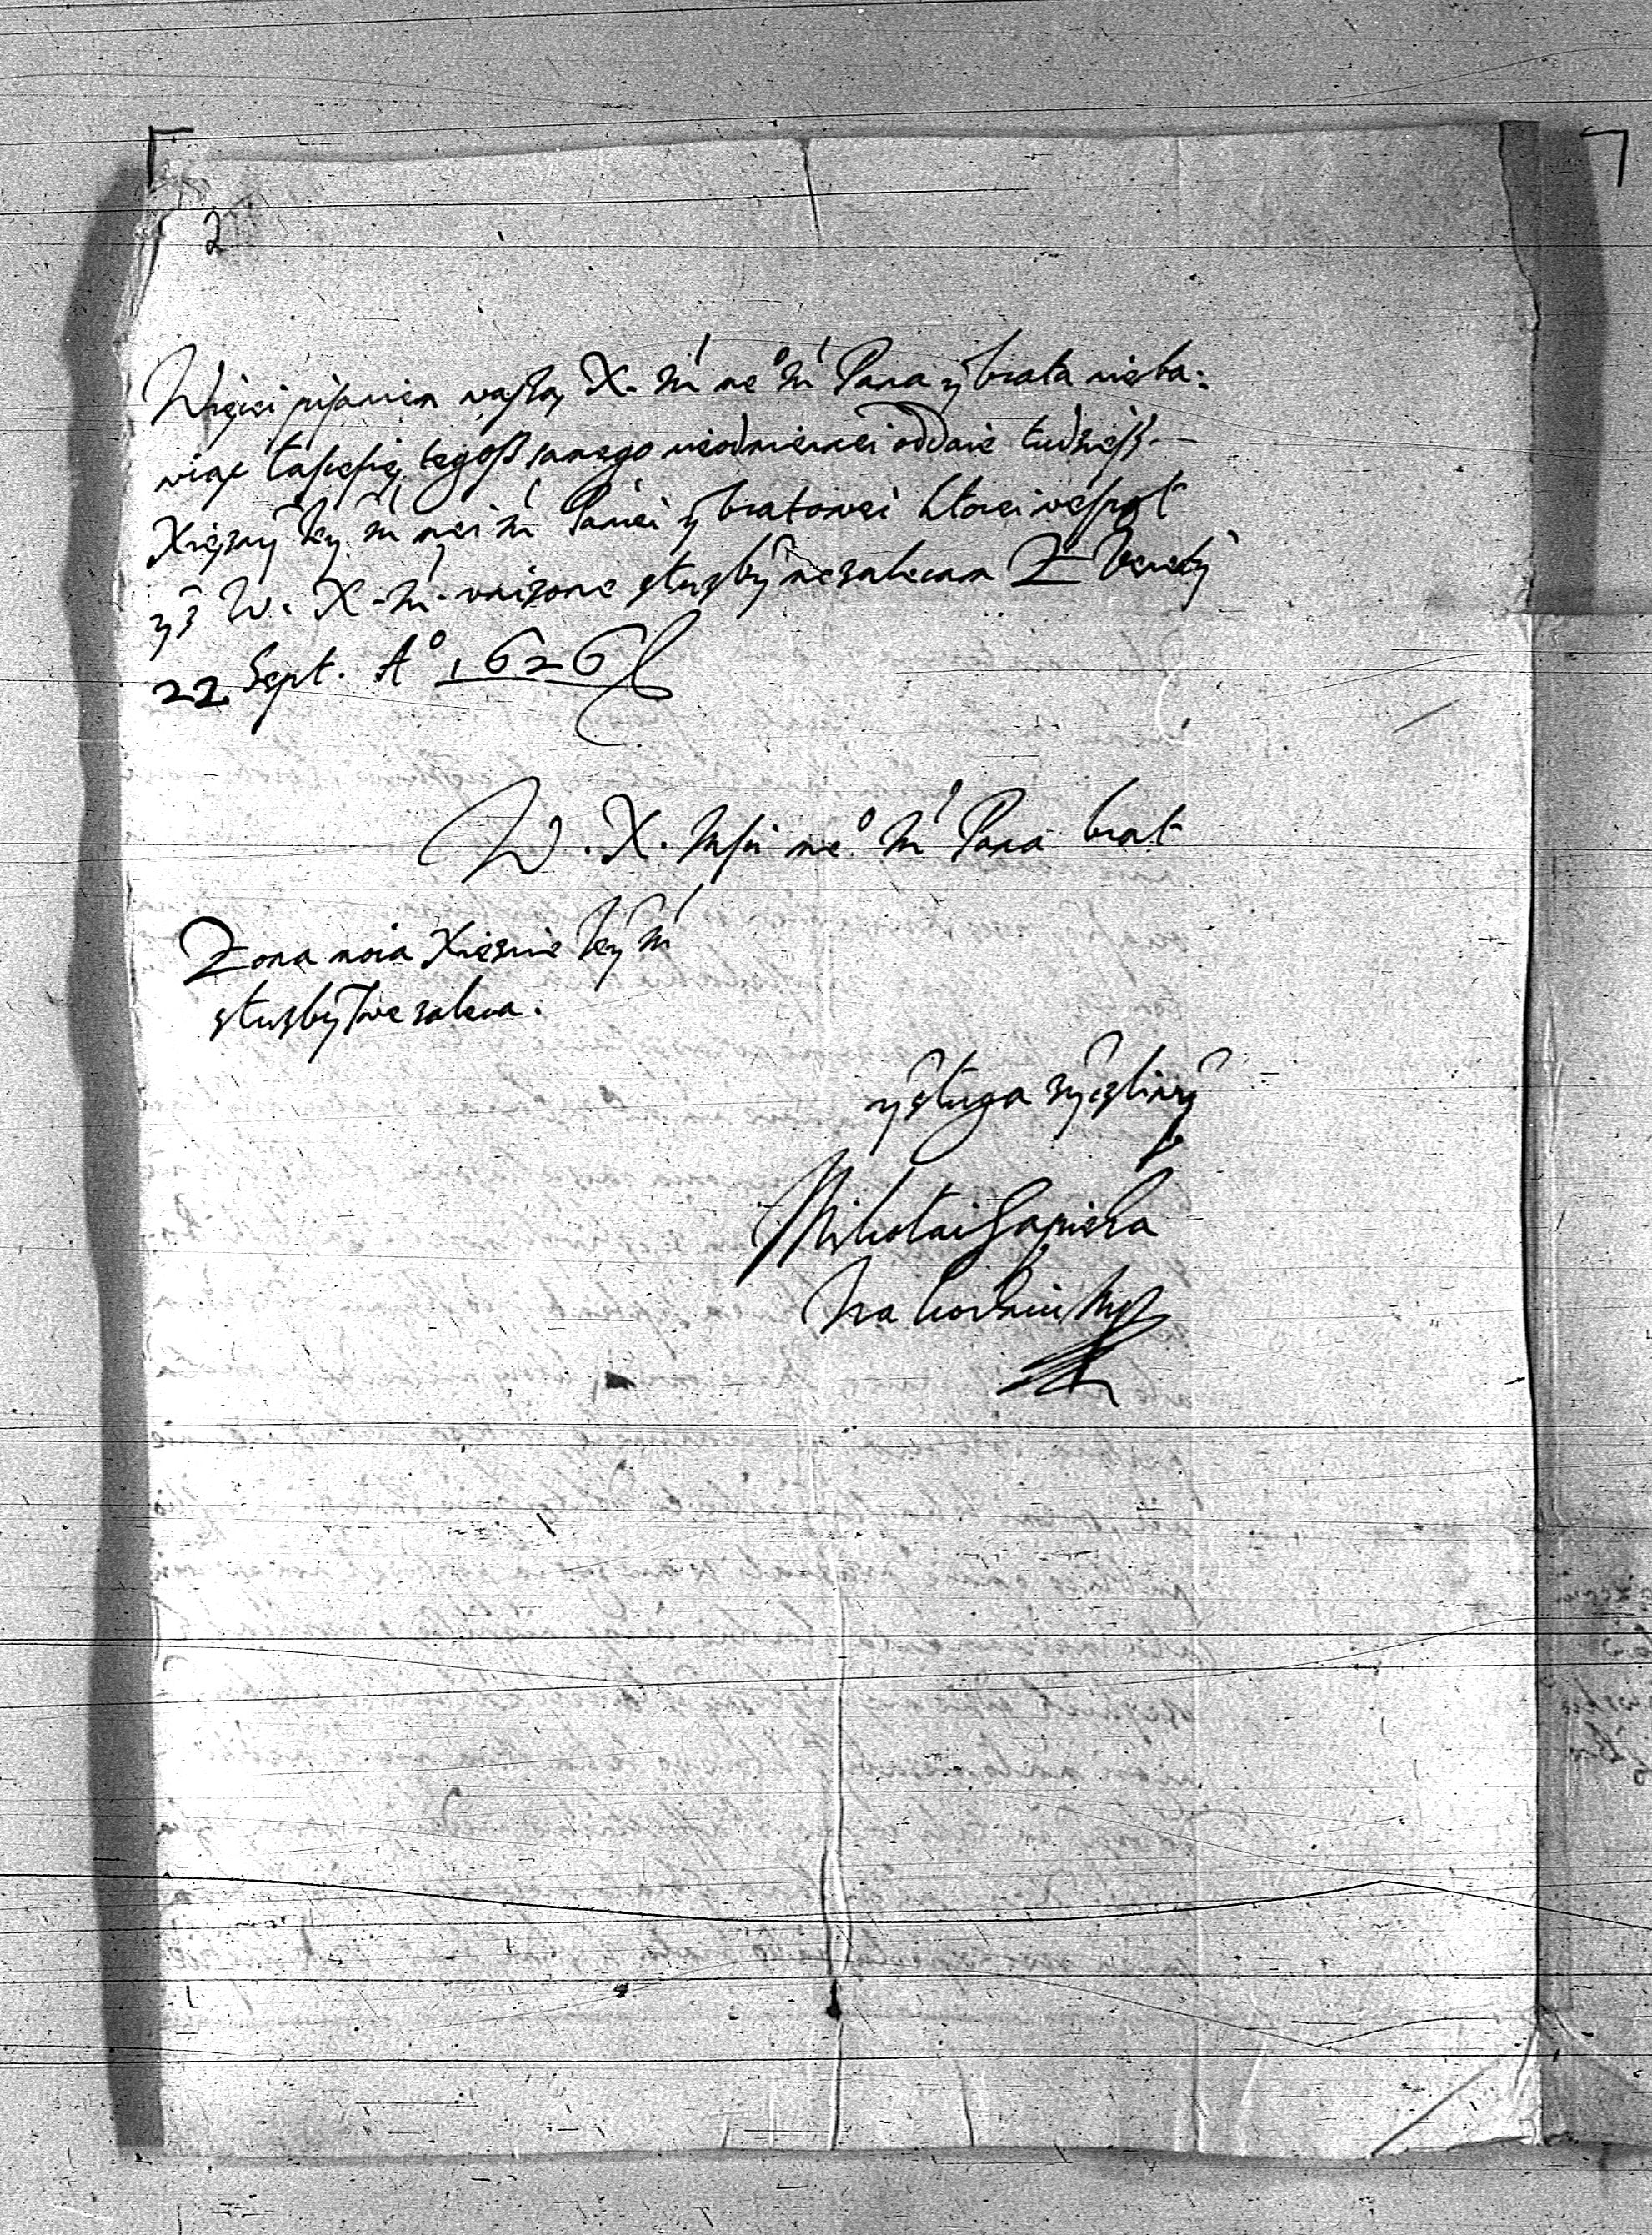 2
Więcei pisaniem waszey X. M mę° M Pana y brata nieba-
wiąc łascesię tegoß samego nieodmiennei oddaie tudzieß
Xięzny Jey M mei M Paniei y bratowei ktorei wespoł
yz W. X. M. unizone słuzby me zalecam Z
22 Sept. A° 1626
W. X. Mści me° M Pana brat
Zona moia Xięznie Jey M
słuzby swe zaleca.
y sługa zyczliwy
Mikołai Sapieha